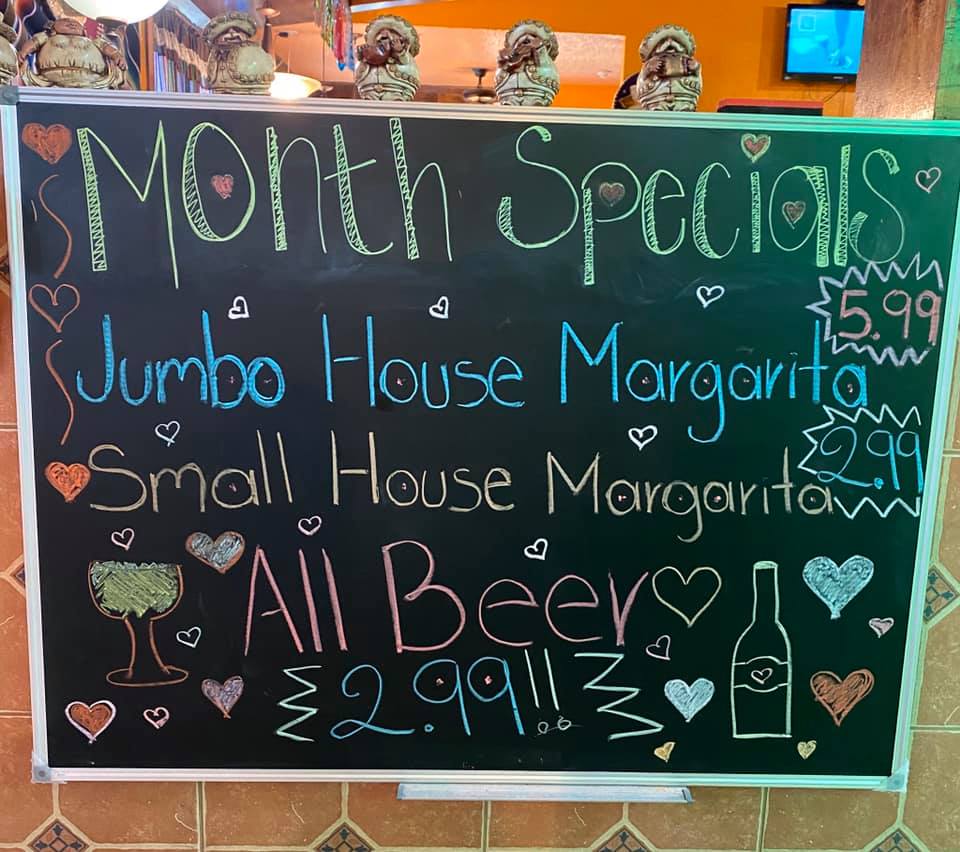 Month Specials
5.99
Jumbo House Margarita
2.99
Small House Margarita
All Beer
2.99!!